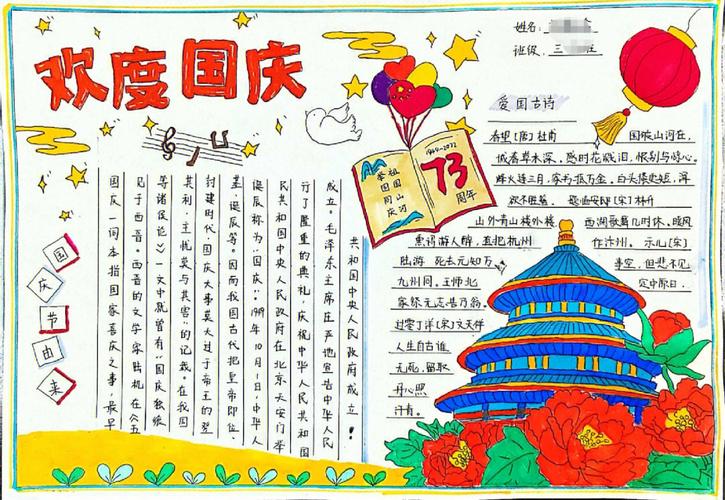 欢度国庆
姓名:
班级: 三 班
1949-2022
73
周年
举国同庆
国庆节由来
国庆一词本指国家喜庆之事,最早
见于西晋。西晋的文学家陆机在《五
等诸侯论》一文中就曾有“国庆独飨
其利,主忧莫与其害”的记载。在我国
封建时代,国庆大事莫大过于帝王的登
基、诞辰等。因而我国古代把皇帝即位、
诞辰称为“国庆”。1949年10月1日,中华人
民共和国中央人民政府在北京天安门举
行了隆重的典礼,庆祝中华人民共和国
成立。毛泽东主席庄严地宣告中华人民
共和国中央人民政府成立!
爱国古诗
春望[唐]杜甫 国破山河在,
城春草木深。感时花溅泪,恨别鸟惊心。
烽火连三月,家书抵万金。白头搔更短,浑
欲不胜簪。 题临安邸[宋]林升
山外青山楼外楼, 西湖歌舞几时休。暖风
熏得游人醉,直把杭州 作汴州。 示儿[宋]
陆游 死去元知万 事空,但悲不见
九州同。王师北 定中原日,
家祭无忘告乃翁。
过零丁洋[宋]文天祥
人生自古谁
无死,留取
丹心照
汗青。